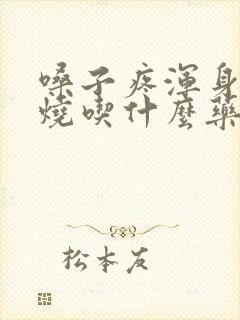 嗓子疼渾身
燒喫什麼藥
松本友